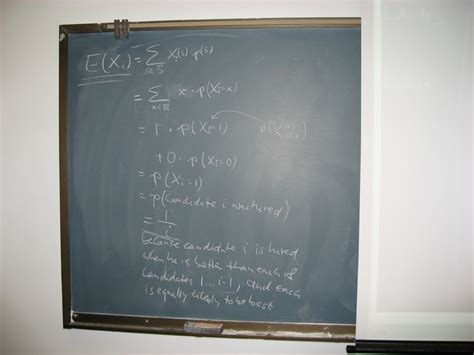 E(Xᵢ) = Σ_{s∈S} Xᵢ(s) · p(s)
= Σ_{x∈ℝ} x · p(Xᵢ=x)
= 1 · p(Xᵢ=1)
+ 0 · p(Xᵢ=0)
= p(Xᵢ=1)
= p(candidate i was hired)
= 1/i
because candidate i is hired
when he is better than each of
candidates 1...i-1, and each
is equally likely to be best